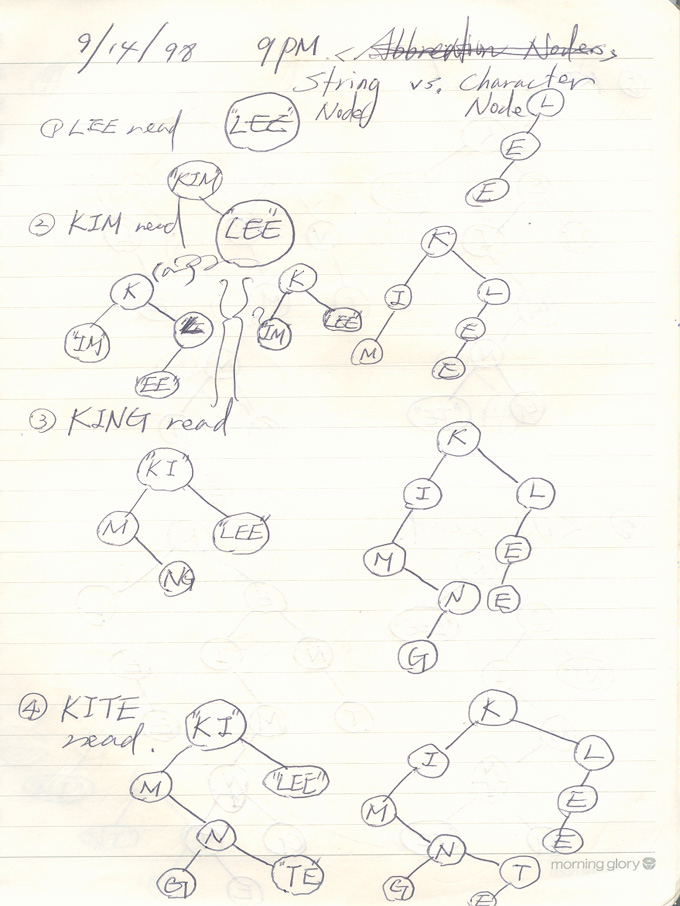 9/14/98 9PM. < Abbreviation Nodes >
String vs. Character
Node Node
① LEE read "LEE" L
E
E
"KIM"
② KIM read "LEE" K
K K I L
"IM" "IM" "LEE" E
"EE" M E
③ KING read
"KI" K
M "LEE" I L
NG M E
N E
G
④ KITE "KI" K
read. "LEE" I L
M M E
N N E
G "TE" G T
E
morning glory